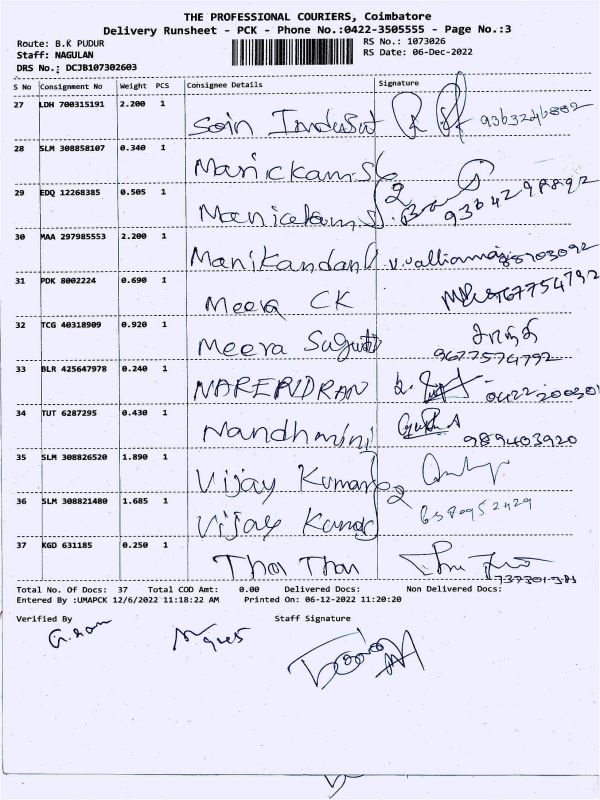 THE PROFESSIONAL COURIERS, Coimbatore
Delivery Runsheet - PCK - Phone No.:0422-3505555 - Page No.:3
Route: B.K PUDUR
RS No.: 1073026
Staff: NAGULAN
RS Date: 06-Dec-2022
DRS No.: DCJB107302603
S No Consignment No Weight PCS Consignee Details Signature
27 LDH 700315191 2.200 1
28 SLM 308858107 0.340 1 Manickam S
29 EDQ 12268385 0.505 1 Manickam S 2
30 MAA 297985553 2.200 1 Manikandan
31 PDK 8002224 0.690 1 Meera CK
32 TCG 40318909 0.920 1 Meera
9677574792
33 BLR 425647978 0.240 1 NARENDRAN
34 TUT 6287295 0.430 1 Nandhmini
989403920
35 SLM 308826520 1.890 1 Vijay Kumar
36 SLM 308821480 1.685 1 Vijay Kumar 2
37 KGD 631185 0.250 1 Thor Thor
Total No. Of Docs: 37 Total COD Amt: 0.00 Delivered Docs: Non Delivered Docs:
Entered By :UMAPCK 12/6/2022 11:18:22 AM Printed On: 06-12-2022 11:20:20
Verified By Staff Signature